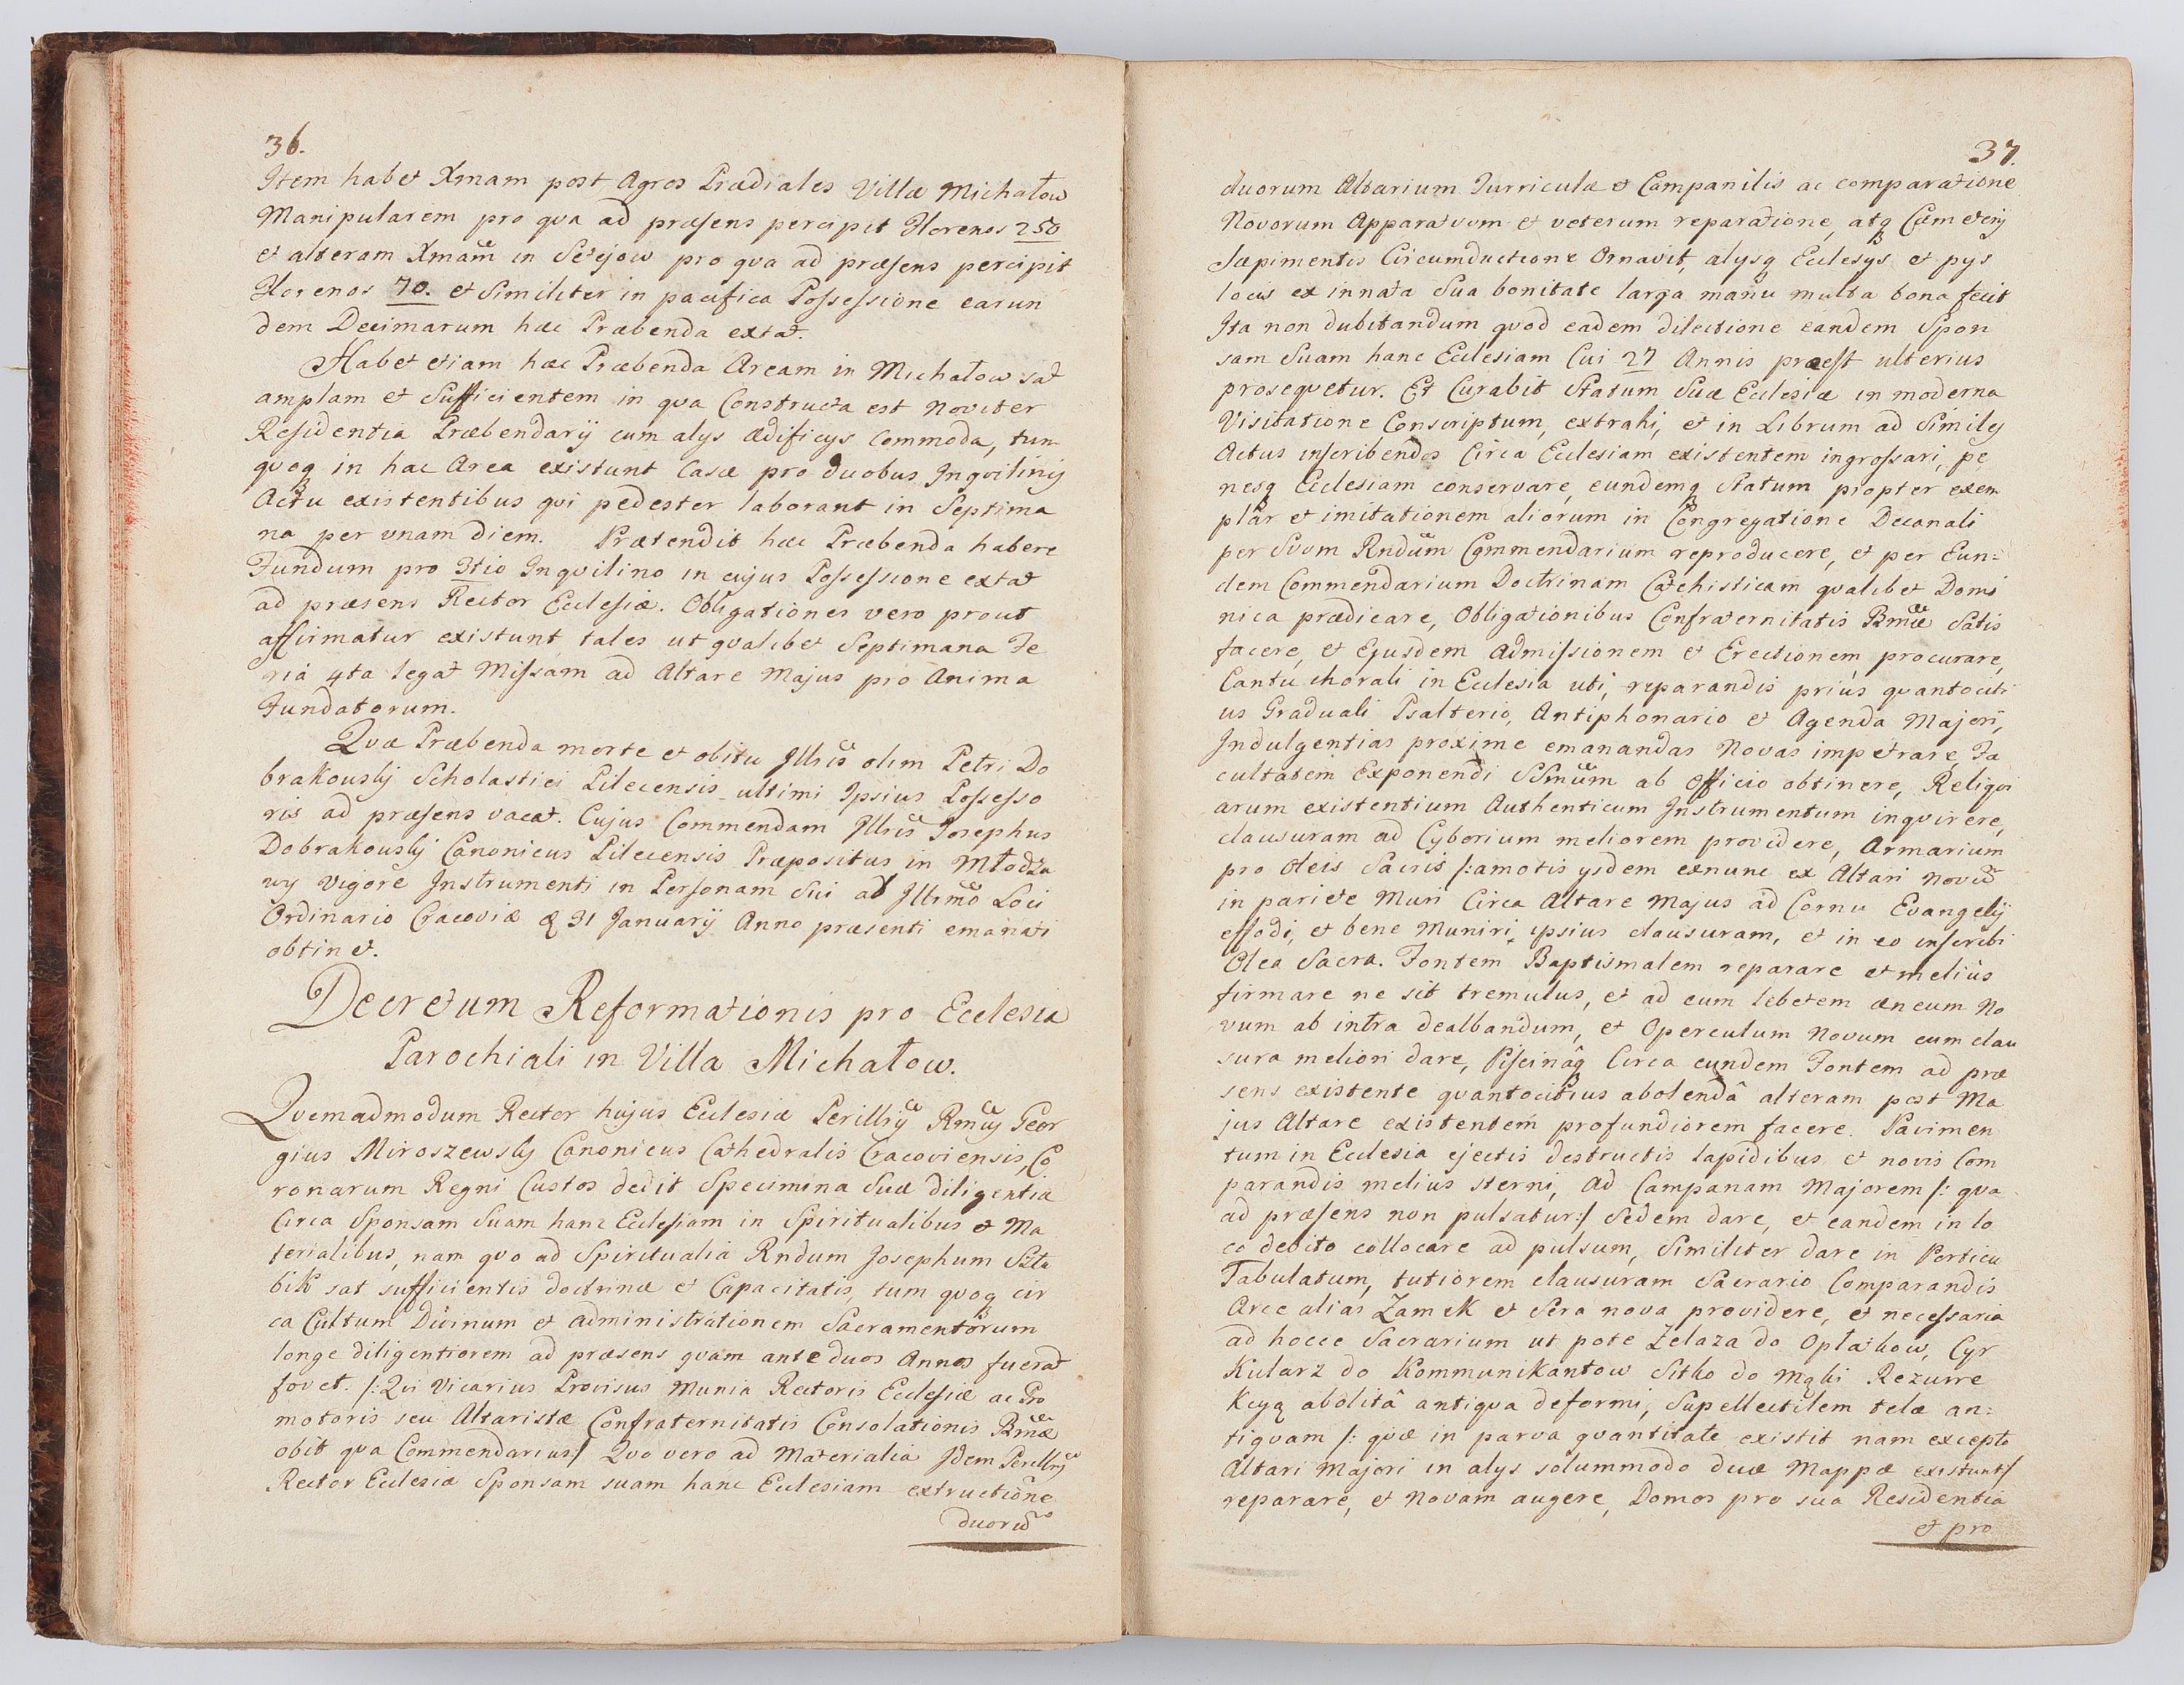 36.
Item habet Xmam post Agros Prædiales Villæ Michałow
Manipularem pro qva ad præsens percipit Florenos 250
et alteram Xmam in Setejow pro qva ad præsens percipit
Florenos 70. et Similiter in pacifica Possessione earun
dem Decimarum hæc Præbenda extat.
Habet etiam hæc Præbenda Aream in Michałow sat
amplam et Sufficientem in qva Constructa est noviter
Residentia Præbendarij cum alys ædificys Commoda, tum
qvoq in hac Area existunt Casæ pro duobus Inqvilinis
Actu existentibus qvi pedester laborant in Septima
na per vnam diem. Prætendit hæc Præbenda habere
Fundum pro 3tio Inqvilino in cujus Possessione extat
ad præsens Rector Ecclesiæ. Obligationes vero prout
affirmatur existunt tales ut qvalibet Septimana Fe
ria 4ta legat Missam ad Altare Majus pro Anima
Fundatorum.
Qvæ Præbenda morte et obitu Illris olim Petri Do
brakousky Scholastici Pilecensis ultimi Ipsius Possesso
ris ad præsens vacat. Cujus Commendam Illris Josephus
Dobrakousky Canonicus Pilecensis Præpositus in Młodza
wy vigore Instrumenti in Personam Sui ad Illrmo Loci
Ordinario Cracoviæ 31 Januarij Anno præsenti emanati
obtinet.
Decretum Reformationis pro Ecclesia
Parochiali in Villa Michałow.
Qvemadmodum Rector hujus Ecclesiæ Perillrij Rmus Geor
gius Miroszewsky Canonicus Cathedralis Cracoviensis Co
ronarum Regni Custos dedit Specimina Suæ diligentiæ
Circa Sponsam Suam hanc Ecclesiam in Spiritualibus et Ma
terialibus, nam qvo ad Spiritualia Rndum Josephum Szta
bik sat sufficientis doctrinæ et Capacitatis, tum qvoq cir
ca Cultum Divinum et administrationem Sacramentorum
longe diligentiorem ad præsens qvam ante duos Annos fuerat
fovet. /: Qvi Vicarius Provisus Munia Rectoris Ecclesiæ ac Pro
motoris seu Altaristæ Confraternitatis Consolationis Bmæ
obit qva Commendarius:/ Qvo vero ad Materialia Idem Perillrij
Rector Ecclesiæ Sponsam suam hanc Ecclesiam extructione
duorum
37.
duorum Altarium Turriculæ et Campanilis ac comparatione
Novorum Apparatuum et veterum reparatione, atq Cæmeterij
Sæpimentis Circumductione Ornavit, alysq Ecclesys et pys
locis ex innata Sua bonitate larga manu multa bona fecit
Ita non dubitandum qvod eadem dilectione eandem Spon
sam Suam hanc Ecclesiam Cui 27 Annis præest ulterius
proseqvetur. Et Curabit Statum Suæ Ecclesiæ in moderna
Visitatione Conscriptum, extrahi, et in Librum ad Similes
Actus inscribendos Circa Ecclesiam existentem ingrossari, pe
nesq Ecclesiam conservare, eundemq Statum propter exem
plar et imitationem aliorum in Congregatione Decanali
per Suum Rndum Commendarium reproducere, et per Eun=
dem Commendarium Doctrinam Catechisticam qvalibet Domi
nica prædicare, Obligationibus Confraternitatis Bmæ Satis
facere, et Ejusdem Admissionem et Erectionem procurare,
Cantu chorali in Ecclesia uti, reparandis prius qvantociti
us Graduali Psalterio, Antiphonario et Agenda Majori,
Indulgentias proxime emanandas Novas impetrare, Fa
cultatem Exponendi SSmum ab Officio obtinere, Religvi
arum existentium Authenticum Instrumentum inqvirere,
clausuram ad Cyborium meliorem providere, Armarium
pro Oleis Sacris /: amotis ysdem exnunc ex Altari novum
in pariete Muri Circa Altare Majus ad Cornu Evangelij
effodi, et bene Muniri ipsius clausuram, et in eo inscribi
Olea Sacra. Fontem Baptismalem reparare et melius
firmare ne sit tremulus, et ad eum lebetem æneum No
vum ab intra dealbandum, et Operculum Novum cum clau
sura meliori dare, Piscinâq Circa eundem Fontem ad præ
sens existente qvantocitius abolendâ alteram post Ma
jus Altare existentem profundiorem facere. Pavimen
tum in Ecclesia ejectis destructis lapidibus et novis Com
parandis melius sterni, Ad Campanam Majorem /: qva
ad præsens non pulsatur:/ Sedem dare, et eandem in lo
co debito collocare ad pulsum, Similiter dare in Porticu
Tabulatum, tutiorem clausuram Sacrario Comparandis
Arce alias Zamek et Sera nova providere, et necessaria
ad hocce Sacrarium ut pote Zelaza do Opłatkow, Cyr
kularz do Kommunikantow Sitko do Mąki Rezurre
Kcyą abolitâ antiqva deformi, Supellectilem telæ an=
tiqvam /: qvæ in parva qvantitate existit nam excepto
Altari Majori in alys solummodo duæ Mappæ existunt:/
reparare, et Novam augere, Domos pro sua Residentia
et pro